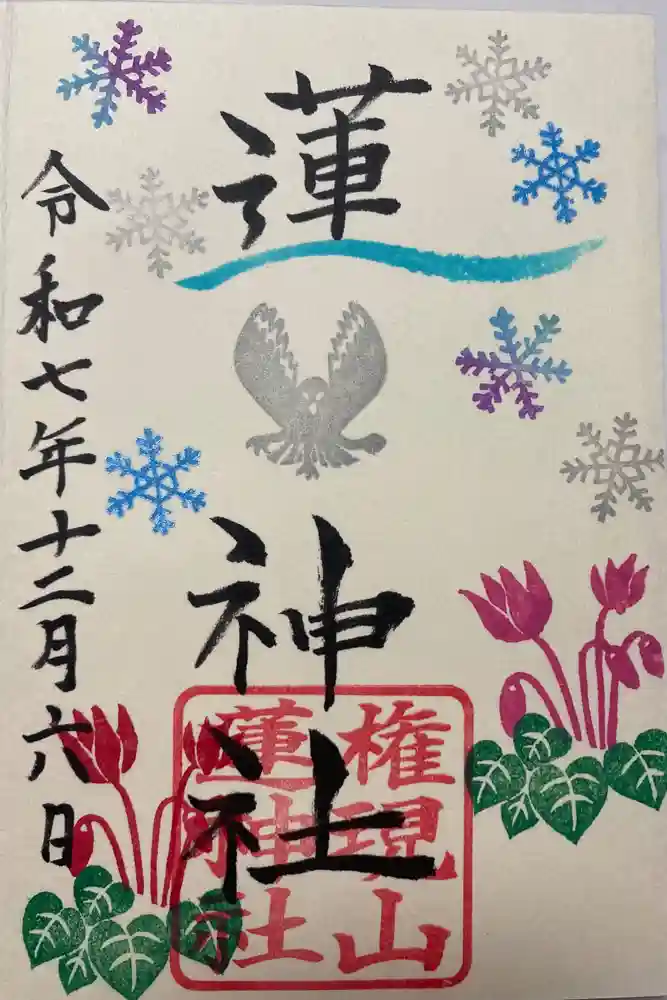 蓮神社
権現山
蓮神社
令和七年十二月六日